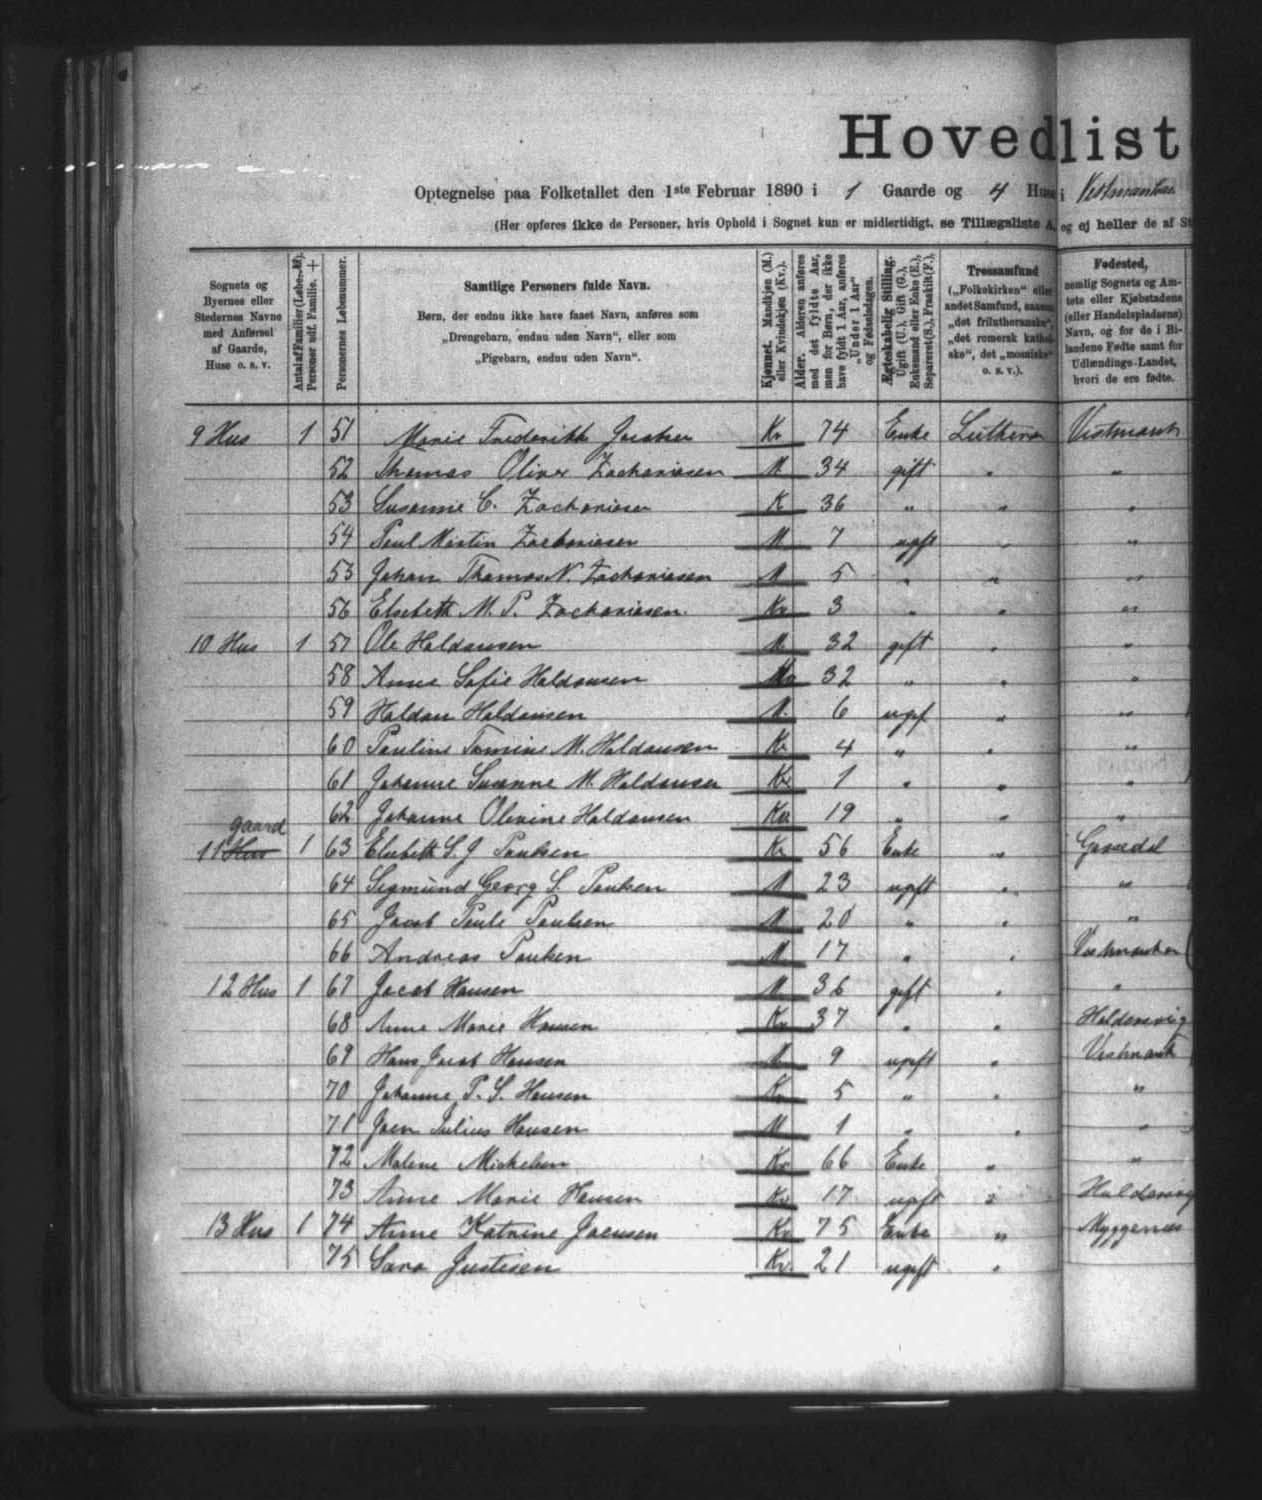 Hovedlist
Optegnelse paa Folketallet den 1ste Februar 1890 i 1 Gaarde og 4 Huse i Vestmanhav
(Her opføres ikke de Personer, hvis Ophold i Sognet kun er midlertidigt, se Tillægsliste A, og ej heller de af St
Sognets og Byernes eller Stedernes Navne med Anførsel af Gaarde, Huse o. s. v.
Antal af Familier (Løbe-№). Personer udf. Familie. +
Personernes Løbenummer.
Samtlige Personers fulde Navn.
Børn, der endnu ikke have faaet Navn, anføres som „Drengebarn, endnu uden Navn“, eller som „Pigebarn, endnu uden Navn“.
Kjønnet. Mandkjøn (M.) eller Kvindekjøn (Kv.).
Alder. Alderen anføres med det fyldte Aar, men for Børn, der ikke have fyldt 1 Aar, anføres „Under 1 Aar“ og Fødselsdagen.
Ægteskabelig Stilling. Ugift (U.), Gift (G.), Enkemand eller Enke (E.), Separeret (S.), Fraskilt (F.).
Trossamfund („Folkekirken“ eller andet Samfund, saasom „det frilutheranske“, „det romersk katholske“, det „mosaiske“ o. s. v.).
Fødested, nemlig Sognets og Amtets eller Kjøbstadens (eller Handelspladsens) Navn, og for de i Bilandene Fødte samt for Udlændinge Landet, hvori de ere fødte.
9 Hus 1 51 Marie Frederikke Jacobsen Kv 74 Enke Luthersk Vestmanh
52 Thomas Oliver Zachariasen M 34 gift " "
53 Susanne C. Zachariasen K 36 " " "
54 Poul Martin Zachariasen M 7 ugift " "
53 Johan Thomas N. Zachariasen M 5 " " "
56 Elsebeth M. P. Zachariasen Kv 3 " " "
10 Hus 1 57 Ole Haldansen M 32 gift " "
58 Anne Sofie Haldansen Kv 32 " " "
59 Haldan Haldansen M. 6 ugif " "
60 Pauline Tomine M. Haldansen Kv 4 " " "
61 Johanne Susanne M. Haldansen Kv 1 " " "
62 Johanne Olivine Haldansen Kv 19 " " "
gaard
11 Hus 1 63 Elsebeth S. J Poulsen Kv 56 Enke " Gaasedal
64 Sigmund Georg S. Poulsen M 23 ugift " "
65 Jacob Poule Poulsen M 20 " " "
66 Andreas Poulsen M 17 " " Vestmanhavn
12 Hus 1 67 Jacob Hansen M 36 gift " "
68 Anne Marie Hansen Kv 37 " " Haldersvig
69 Hans Jacob Hansen M 9 ugift " Vestmanh
70 Johanne P. S. Hansen Kv 5 " " "
71 Joen Julius Hansen M 1 " " "
72 Malene Mickelsen Kv 66 Enke " "
73 Anne Marie Hansen Kv 17 ugift " Haldersvig
13 Hus 1 74 Anne Katrine Joensen Kv 75 Enke " Myggenæs
75 Sara Justesen Kv. 21 ugift "